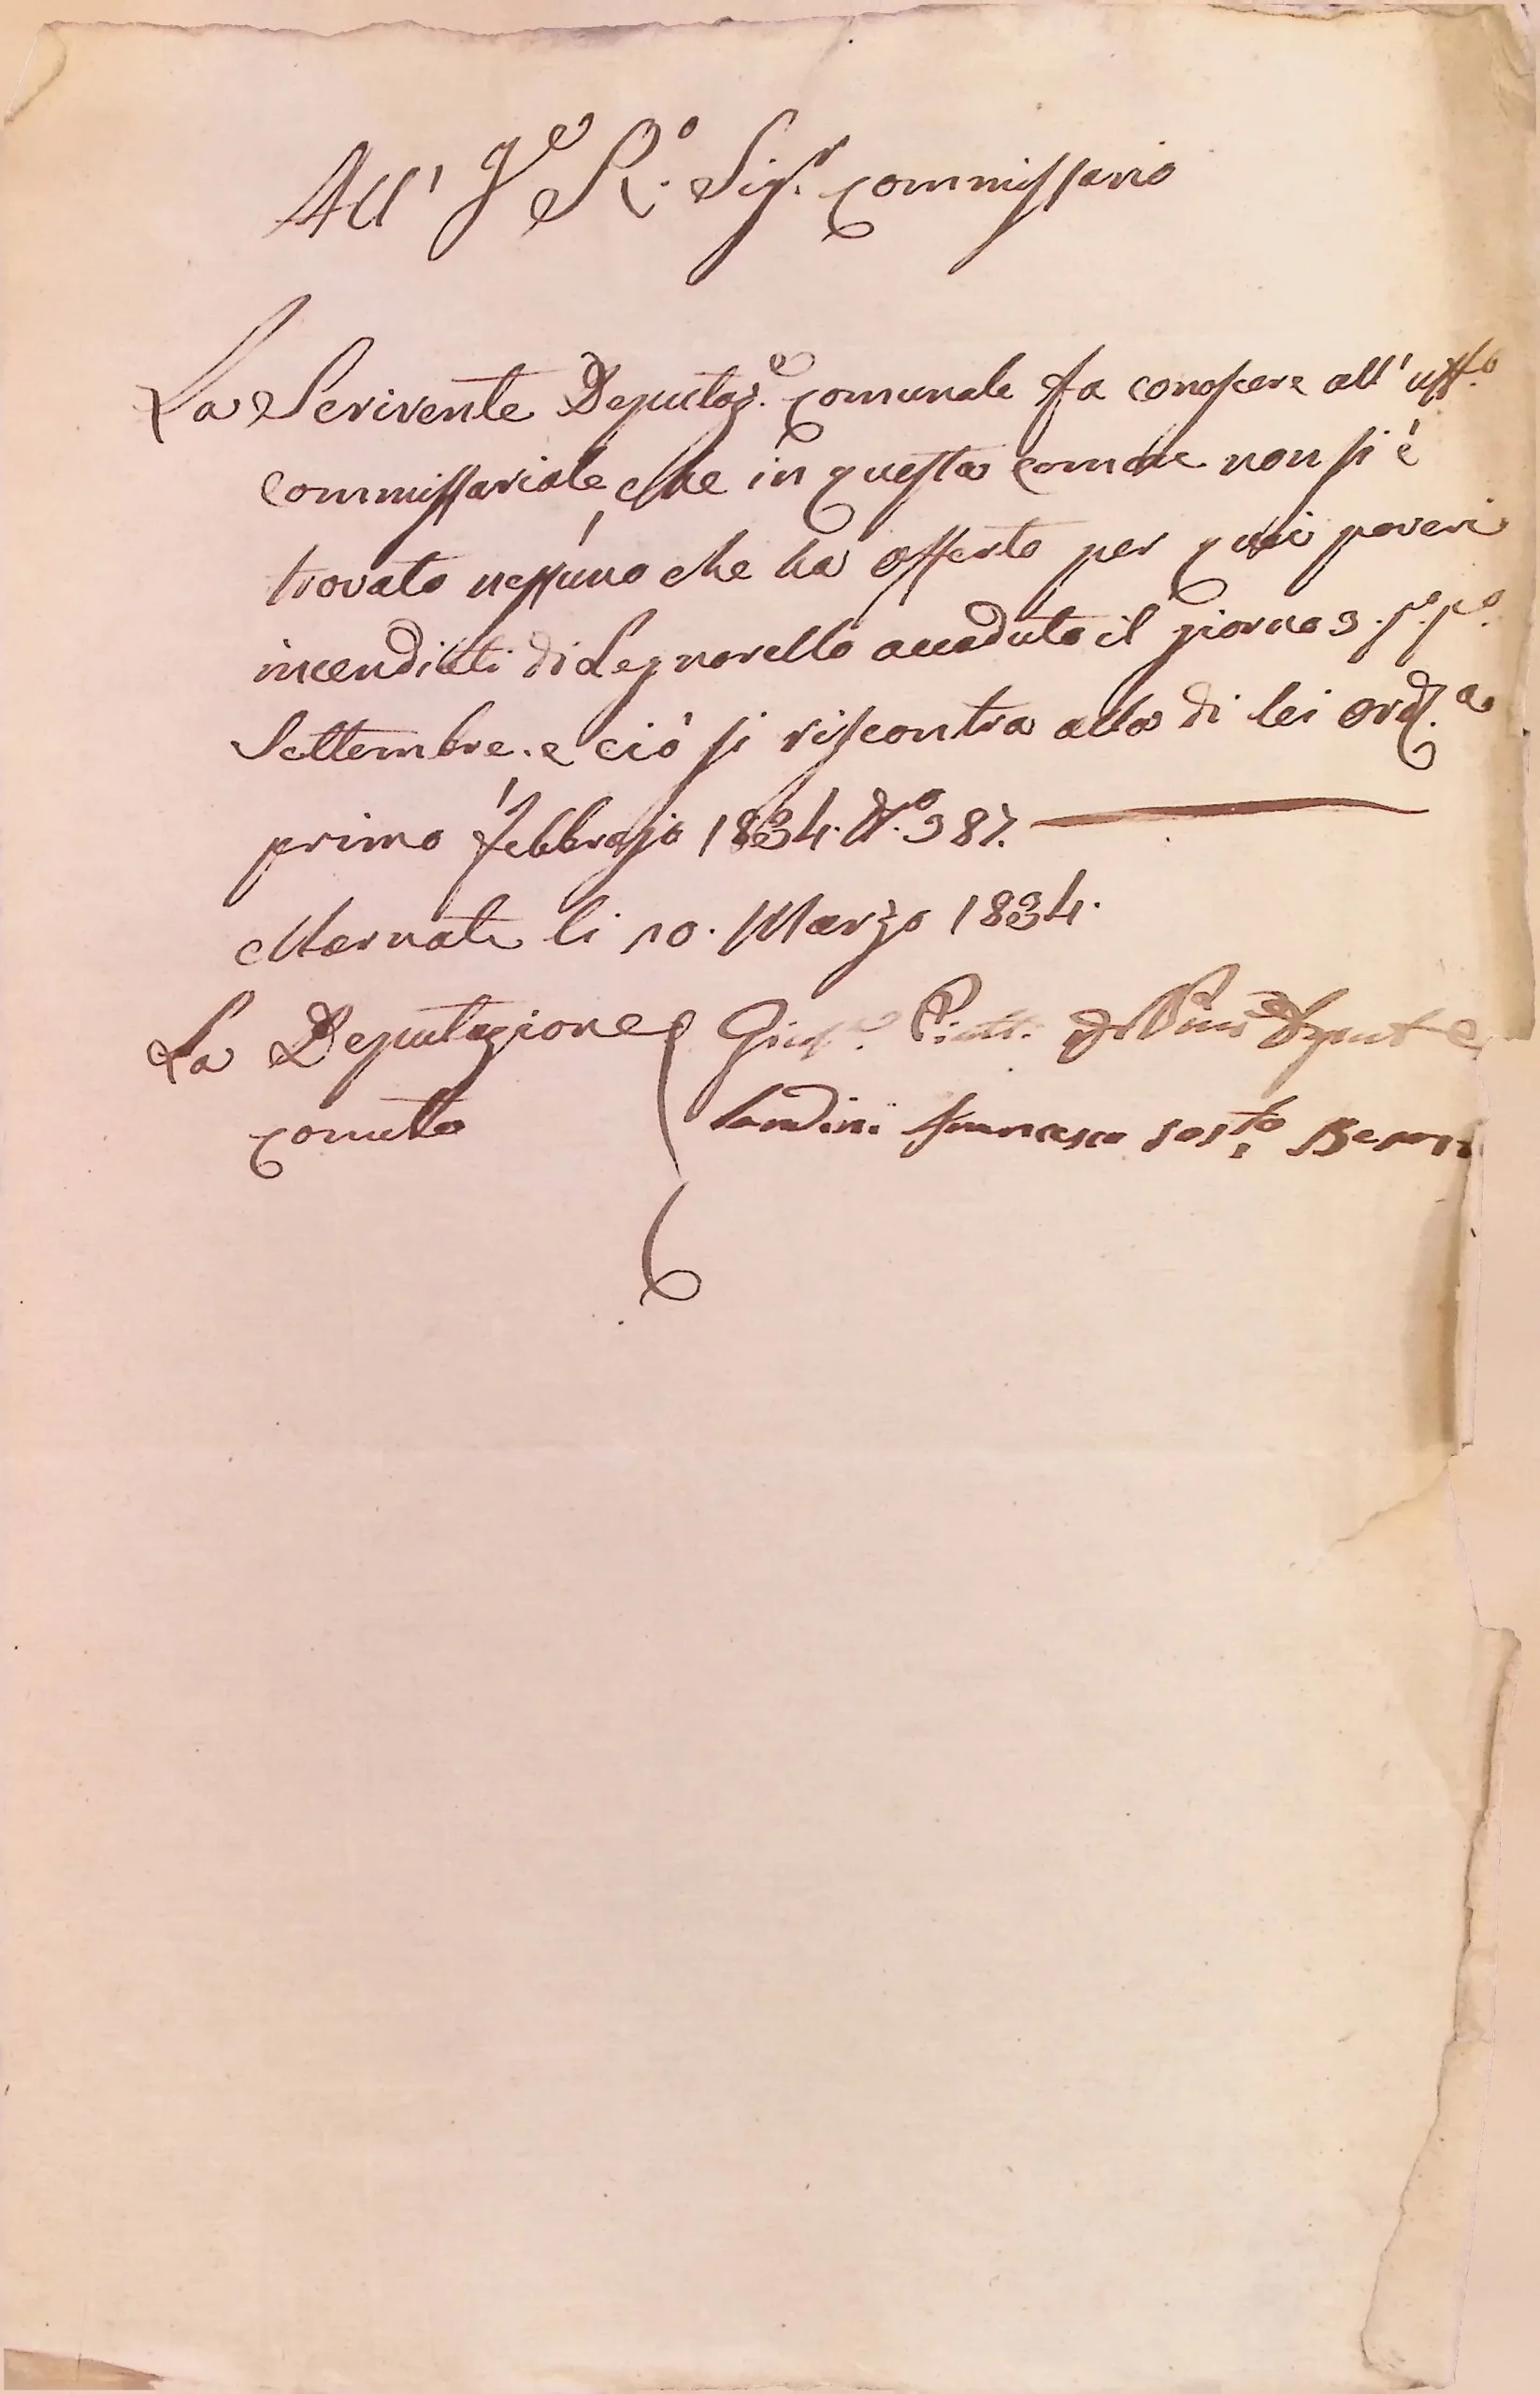 All' I.e R.o Sig.r Commissario
La Scrivente Deputaz.e Comunale fa conoscere all' uff.o
Commissariale che in questa Comune non si è
trovato nessuno che ha offerto per quei poveri
incendiati di Legnarello accaduto il giorno 3. p.o p.o
Settembre. e ciò si riscontra alla di lei ord.a
primo Febbrajo 1834. N.o 387.
Marnate li 10. Marzo 1834.
La Deputazione
Comunle
Landini Francesco sost.to